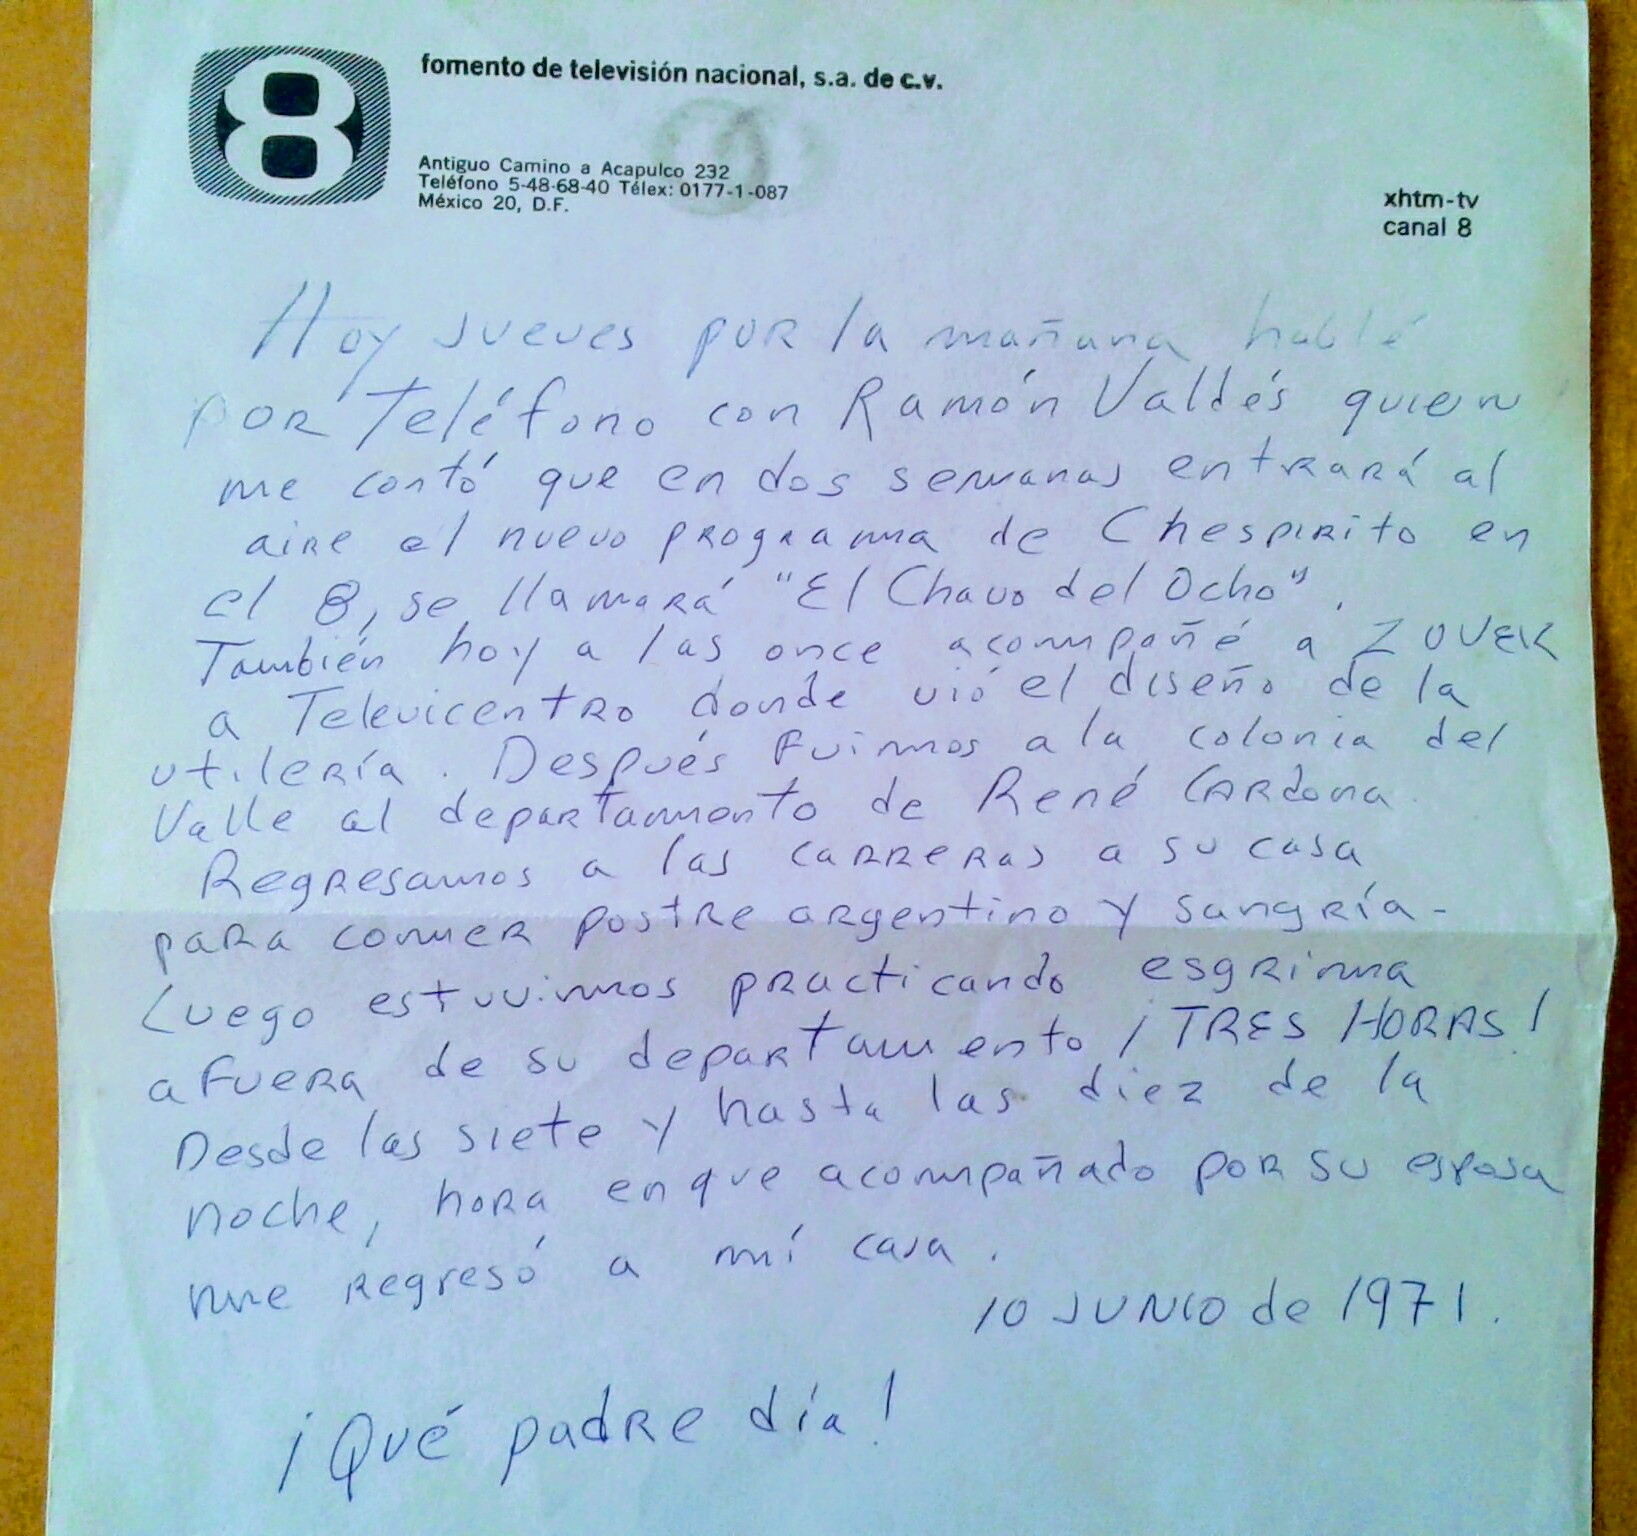 8
fomento de televisión nacional, s.a. de c.v.
Antiguo Camino a Acapulco 232
Teléfono 5-48-68-40 Télex: 0177-1-087
México 20, D.F.
xhtm-tv
canal 8
Hoy jueves por la mañana hablé
por teléfono con Ramón Valdés quien
me contó que en dos semanas entrará al
aire el nuevo programa de Chespirito en
el 8, se llamará "El Chavo del Ocho".
También hoy a las once acompañé a Zovek
a Televicentro donde vió el diseño de la
utilería. Después fuimos a la colonia del
Valle al departamento de René Cardona.
Regresamos a las carreras a su casa
para comer postre argentino y sangría.
Luego estuvimos practicando esgrima
afuera de su departamento ¡TRES HORAS!
Desde las siete y hasta las diez de la
noche, hora en que acompañado por su esposa
me regresó a mí casa.
10 JUNIO de 1971.
¡Qué padre día!